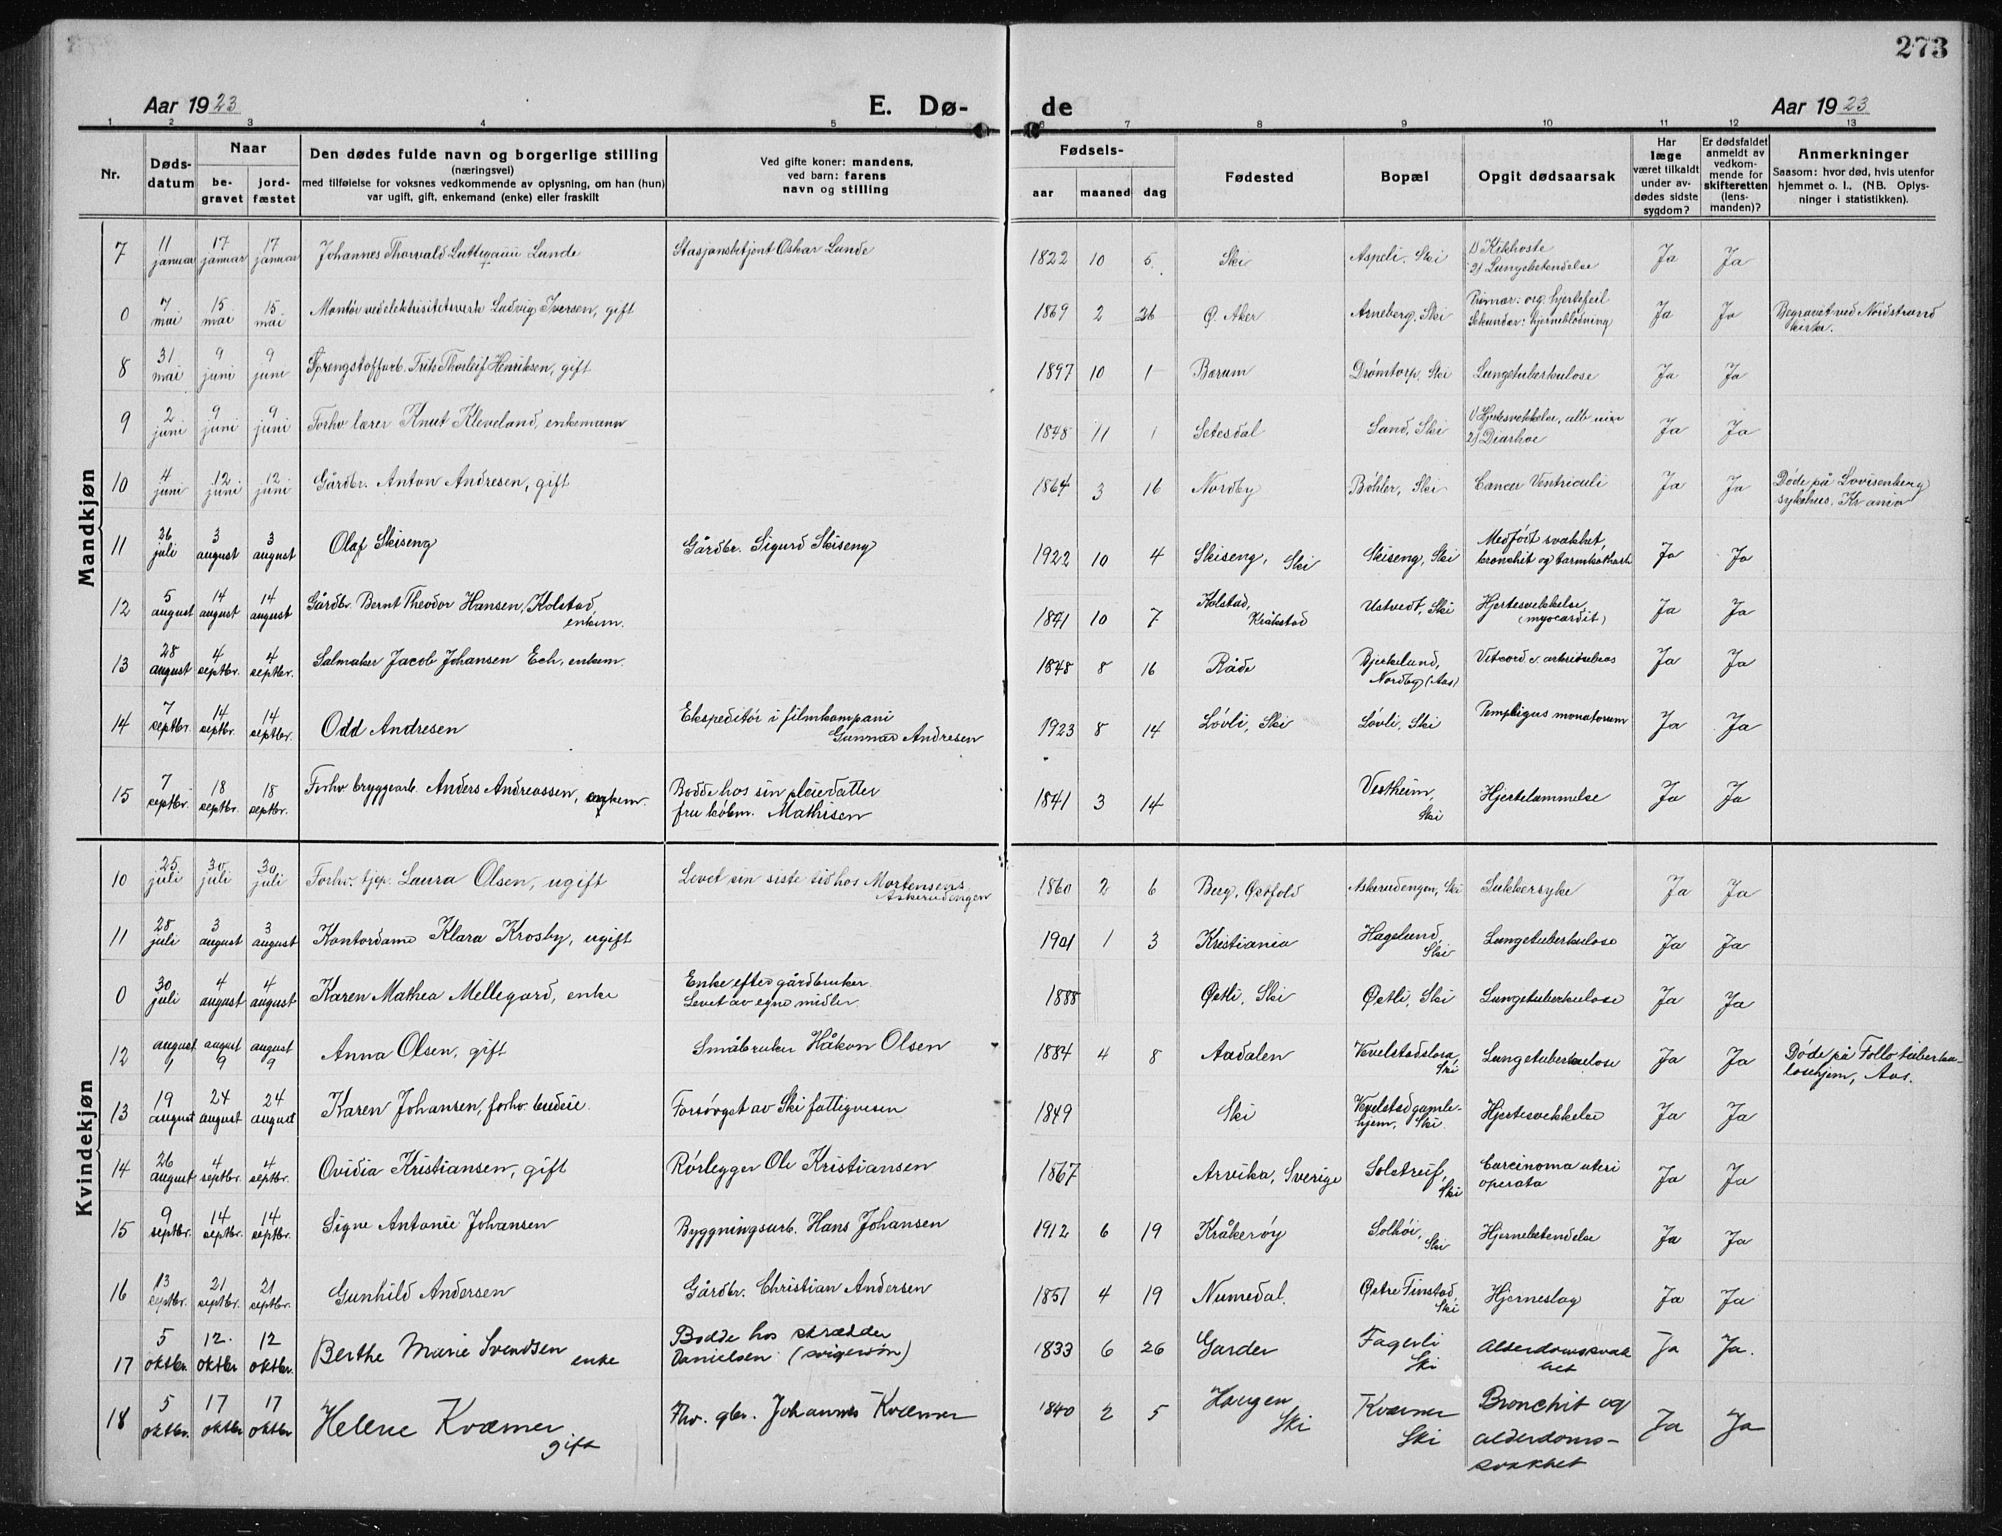 273
Aar 1923
E. Dø-
de
Aar 1923
1 2 3 4 5 6 7 8 9 10 11 12 13
Nr.
Døds-
datum
Naar
be-
gravet
jord-
fæstet
Den dødes fulde navn og borgerlige stilling
(næringsvei)
med tilføielse for voksnes vedkommende av oplysning, om han (hun)
var ugift, gift, enkemand (enke) eller fraskilt
Ved gifte koner: mandens,
ved barn: farens
navn og stilling
Fødsels-
aar maaned dag
Fødested
Bopæl
Opgit dødsaarsak
Har
læge
været tilkaldt
under av-
dødes sidste
sygdom?
Er dødsfaldet
anmeldt av
vedkom-
mende for
skifteretten
(lens-
manden)?
Anmerkninger
Saasom: hvor død, hvis utenfor
hjemmet o. l., (NB. Oplys-
ninger i statistikken).
Mandkjøn
7 11 januar 17 januar 17 januar Johannes Thorvald Lunde Stasjonsbetjent Oskar Lunde 1822 10 5 Ski Aspeli, Ski 1) Kikhoste Ja Ja
2) Lungebetendelse
0 7 mai 15 mai 15 mai Montør ved elektrisitetsverk Ludvig Iversen, gift 1869 2 26 Ø. Aker Arneberg, Ski Primær: org. hjertefeil Ja Ja Begravet ved Nordstrand
Sekundær: hjerneblødning kirke.
8 31 mai 9 juni 9 juni Sprengstoffarb. Frits Thorleif Henriksen, gift 1897 10 1 Bærum Drømtorp, Ski Lungetuberkulose Ja Ja
9 2 juni 9 juni 9 juni Forhv lærer Knut Kleveland, enkemann 1848 11 1 Setesdal Sand, Ski 1) Hjertesvekkelse, alb. Ja Ja
2) Diarhoe
10 4 juni 12 juni 12 juni Gårdbr. Anton Andresen, gift 1864 3 16 Nordby Bøhler, Ski Cancer Ventriculi Ja Ja Døde på Lovisenberg
sykehus. Kr.ania
11 26 juli 3 august 3 august Olaf Skiseng Gårdbr. Sigurd Skiseng 1922 10 4 Skiseng, Ski Skiseng, Ski Medfødt svakhet, Ja Ja
bronchit og tarmkatharh
12 5 august 14 august 14 august Gårdbr. Bernt Theodor Hansen, Kolstad, enkem. 1841 10 7 Kolstad, Kråkstad Ustvedt, Ski Hjertesvekkelse Ja Ja
(myocardit)
13 28 august 4 septbr. 4 septbr. Salmaker Jacob Johansen Ech, enkem. 1848 8 16 Råde Bjerkelund, Nordby (Aas) Ja Ja
14 7 septbr. 14 septbr. 14 septbr. Odd Andresen Ekspeditør i filmkompani Gunnar Andresen 1923 8 14 Løvli, Ski Løvli, Ski Pemphigus monatorum Ja Ja
15 7 septbr. 18 septbr. 18 septbr. Forhv bryggearb. Anders Andreassen, enkem. Bodde hos sin pleiedatter 1841 3 14 Vestheim, Ski Hjertelammelse Ja Ja
fru Mathisen
Kvindekjøn
10 25 juli 30 juli 30 juli Forhv. tjen. Laura Olsen, ugift Levet sin siste tid hos Mortensens 1860 2 6 Berg, Østfold Askerudengen, Ski Sukkersyke Ja Ja
Askerudengen
11 28 juli 3 august 3 august Kontordame Klara Krosby, ugift 1901 1 3 Kristiania Hagelund, Ski Lungetuberkulose Ja Ja
0 30 juli 4 august 4 august Karen Mathea Mellegard, enke Enke efter gårdbruker. 1888 Østli, Ski Østli, Ski Lungetuberkulose Ja Ja
Levet av egne midler.
12 august 1 august 9 august 9 Anna Olsen, gift Småbruker Håkon Olsen 1884 4 8 Aadalen Vevelstadslosa, Ski Lungetuberkulose Ja Ja Døde på Follo tuberku-
losehjem, Aas.
13 19 august 24 august 24 august Karen Johansen, forhv. budeie. Forsørget av Ski fattigvesen 1849 Ski Vevelstad gamle- Hjertesvekkelse Ja Ja
hjem, Ski.
14 26 august 4 septbr. 4 septbr. Ovidia Kristiansen, gift Rørlegger Ole Kristiansen 1867 Arvika, Sverige Solstreif, Ski Carcinoma uteri Ja Ja
operata
15 9 septbr. 14 septbr. 14 septbr. Signe Antonie Johansen Byggningsarb. Hans Johansen 1912 6 19 Kråkerøy Solhøi, Ski Hjernebetendelse Ja Ja
16 13 septbr. 21 septbr. 21 septbr. Gunhild Andersen Gårdbr. Christian Andersen 1851 4 19 Numedal. Østre Finstad, Ski Hjerneslag Ja Ja
17 5 oktbr. 12 oktbr 12 oktbr. Berthe Marie Svendsen enke Bodde hos skrædder 1833 6 26 Garder Fagerli Ski Alderdomssvak Ja Ja.
Danielsen (svigersøn) het
18 5 oktbr. 17 oktbr 17 oktbr Helene Kværner gift Fhv. gbr. Johannes Kværner 1840 2 5 Haugen Ski Kværner Ski Bronchit og Ja Ja
alderdoms-
svakhet